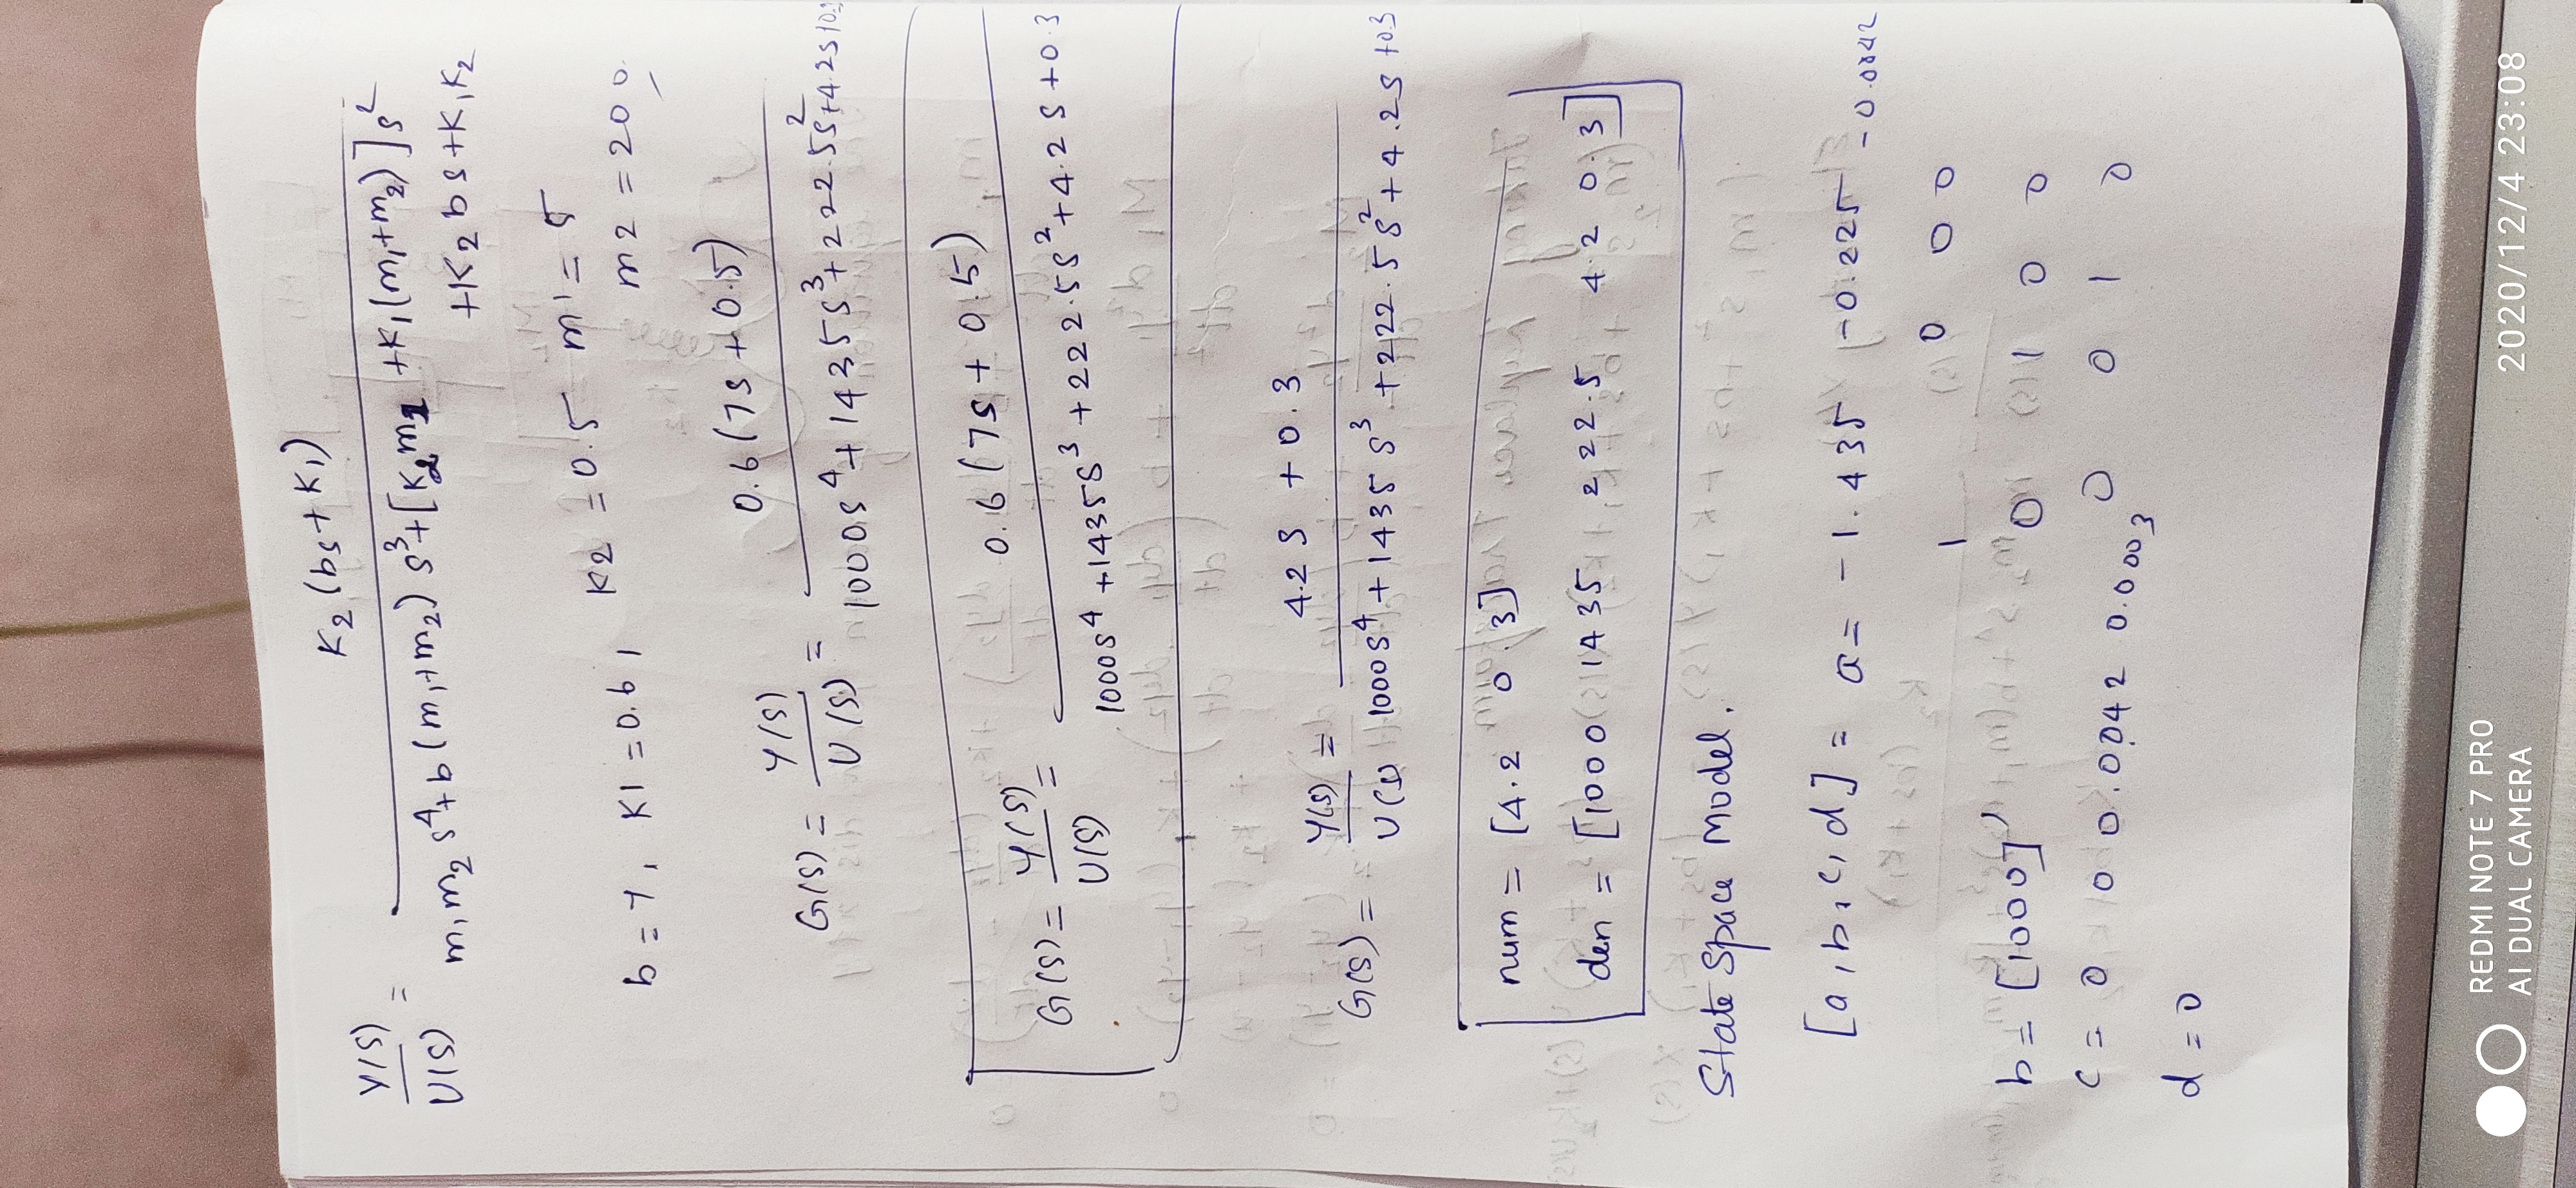 Y(S)/U(S) = K2 (bs + K1) / m1m2 s^4 + b(m1+m2) s^3 + [K2 m2 + K1(m1+m2)] s^2
+ K2 b s + K1K2
b = 7, K1 = 0.6, K2 = 0.5 m1 = 5
m2 = 200
G(S) = Y(S)/U(S) = 0.6(7s + 0.5) / 1000s^4 + 1435s^3 + 222.5s^2 + 4.2s
G(S) = Y(S)/U(S) = 0.6(7s + 0.5) / 1000s^4 + 1435s^3 + 222.5s^2 + 4.2s + 0.3
G(S) = Y(S)/U(S) = 4.2s + 0.3 / 1000s^4 + 1435s^3 + 222.5s^2 + 4.2s + 0.3
num = [4.2 0.3]
den = [1000 1435 222.5 4.2 0.3]
State Space Model.
[a, b, c, d] = a = -1.435 -0.225 -0.0042
1 0 0 0
b = [1000]' 0 1 0 0
c = 0 0 0.0042 0.0003 0 0 1 0
d = 0
REDMI NOTE 7 PRO
AI DUAL CAMERA
2020/12/4 23:08